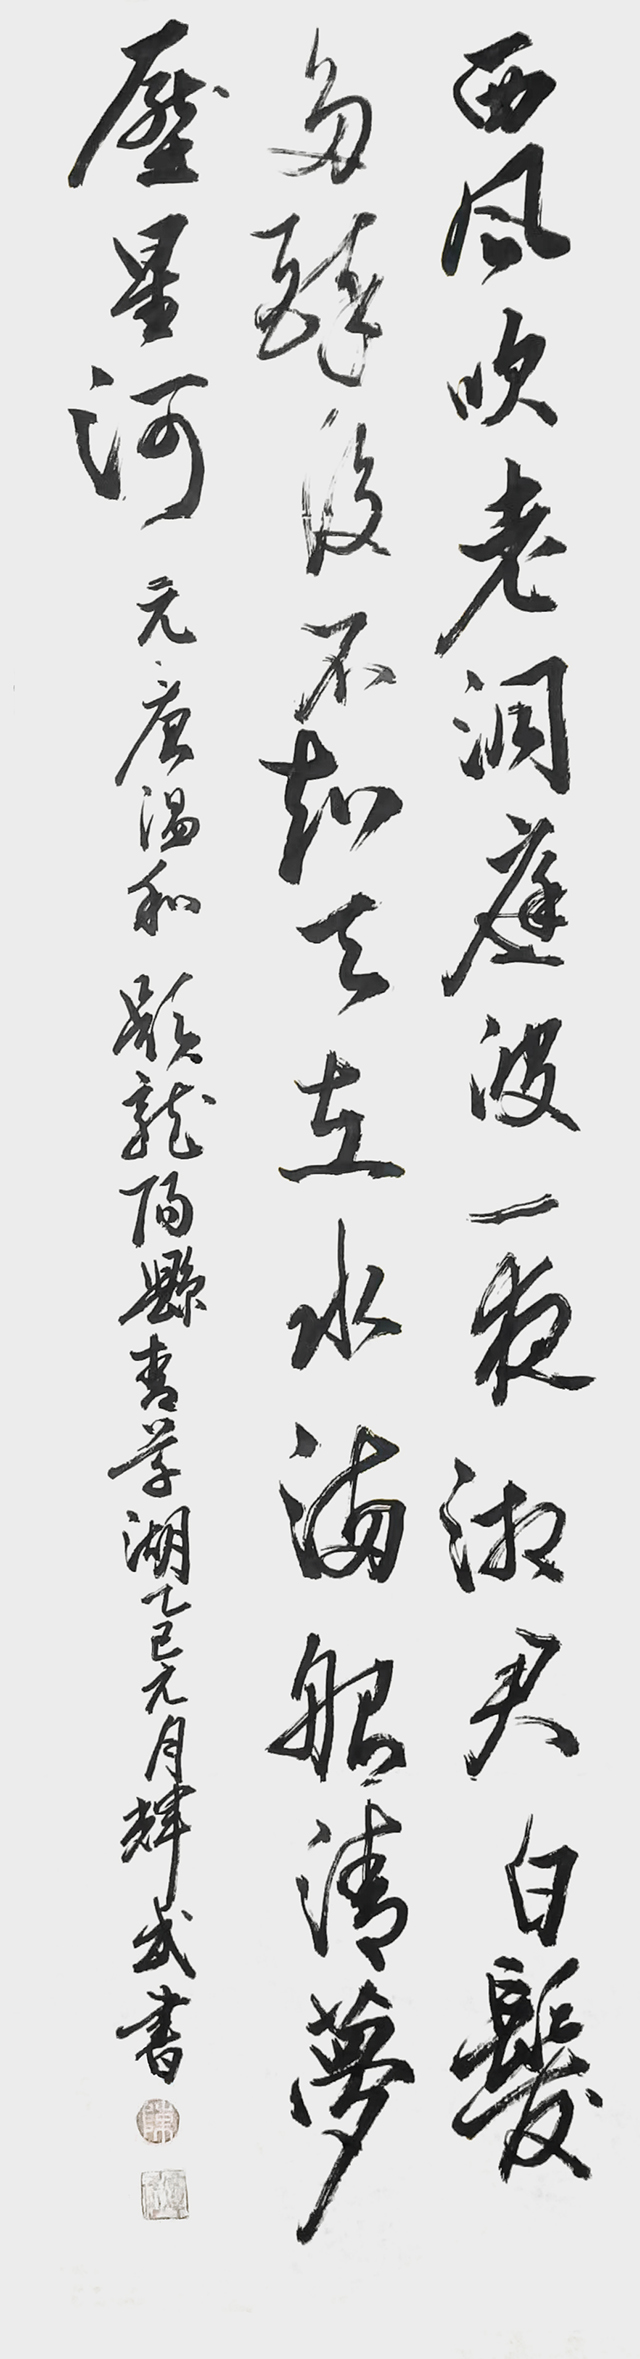 西風吹老洞庭波一夜湘君白髮
多醉後不知天在水满船清夢
壓星河 元唐温和 題龍陽縣青草湖 乙巳元月輝武書
陳